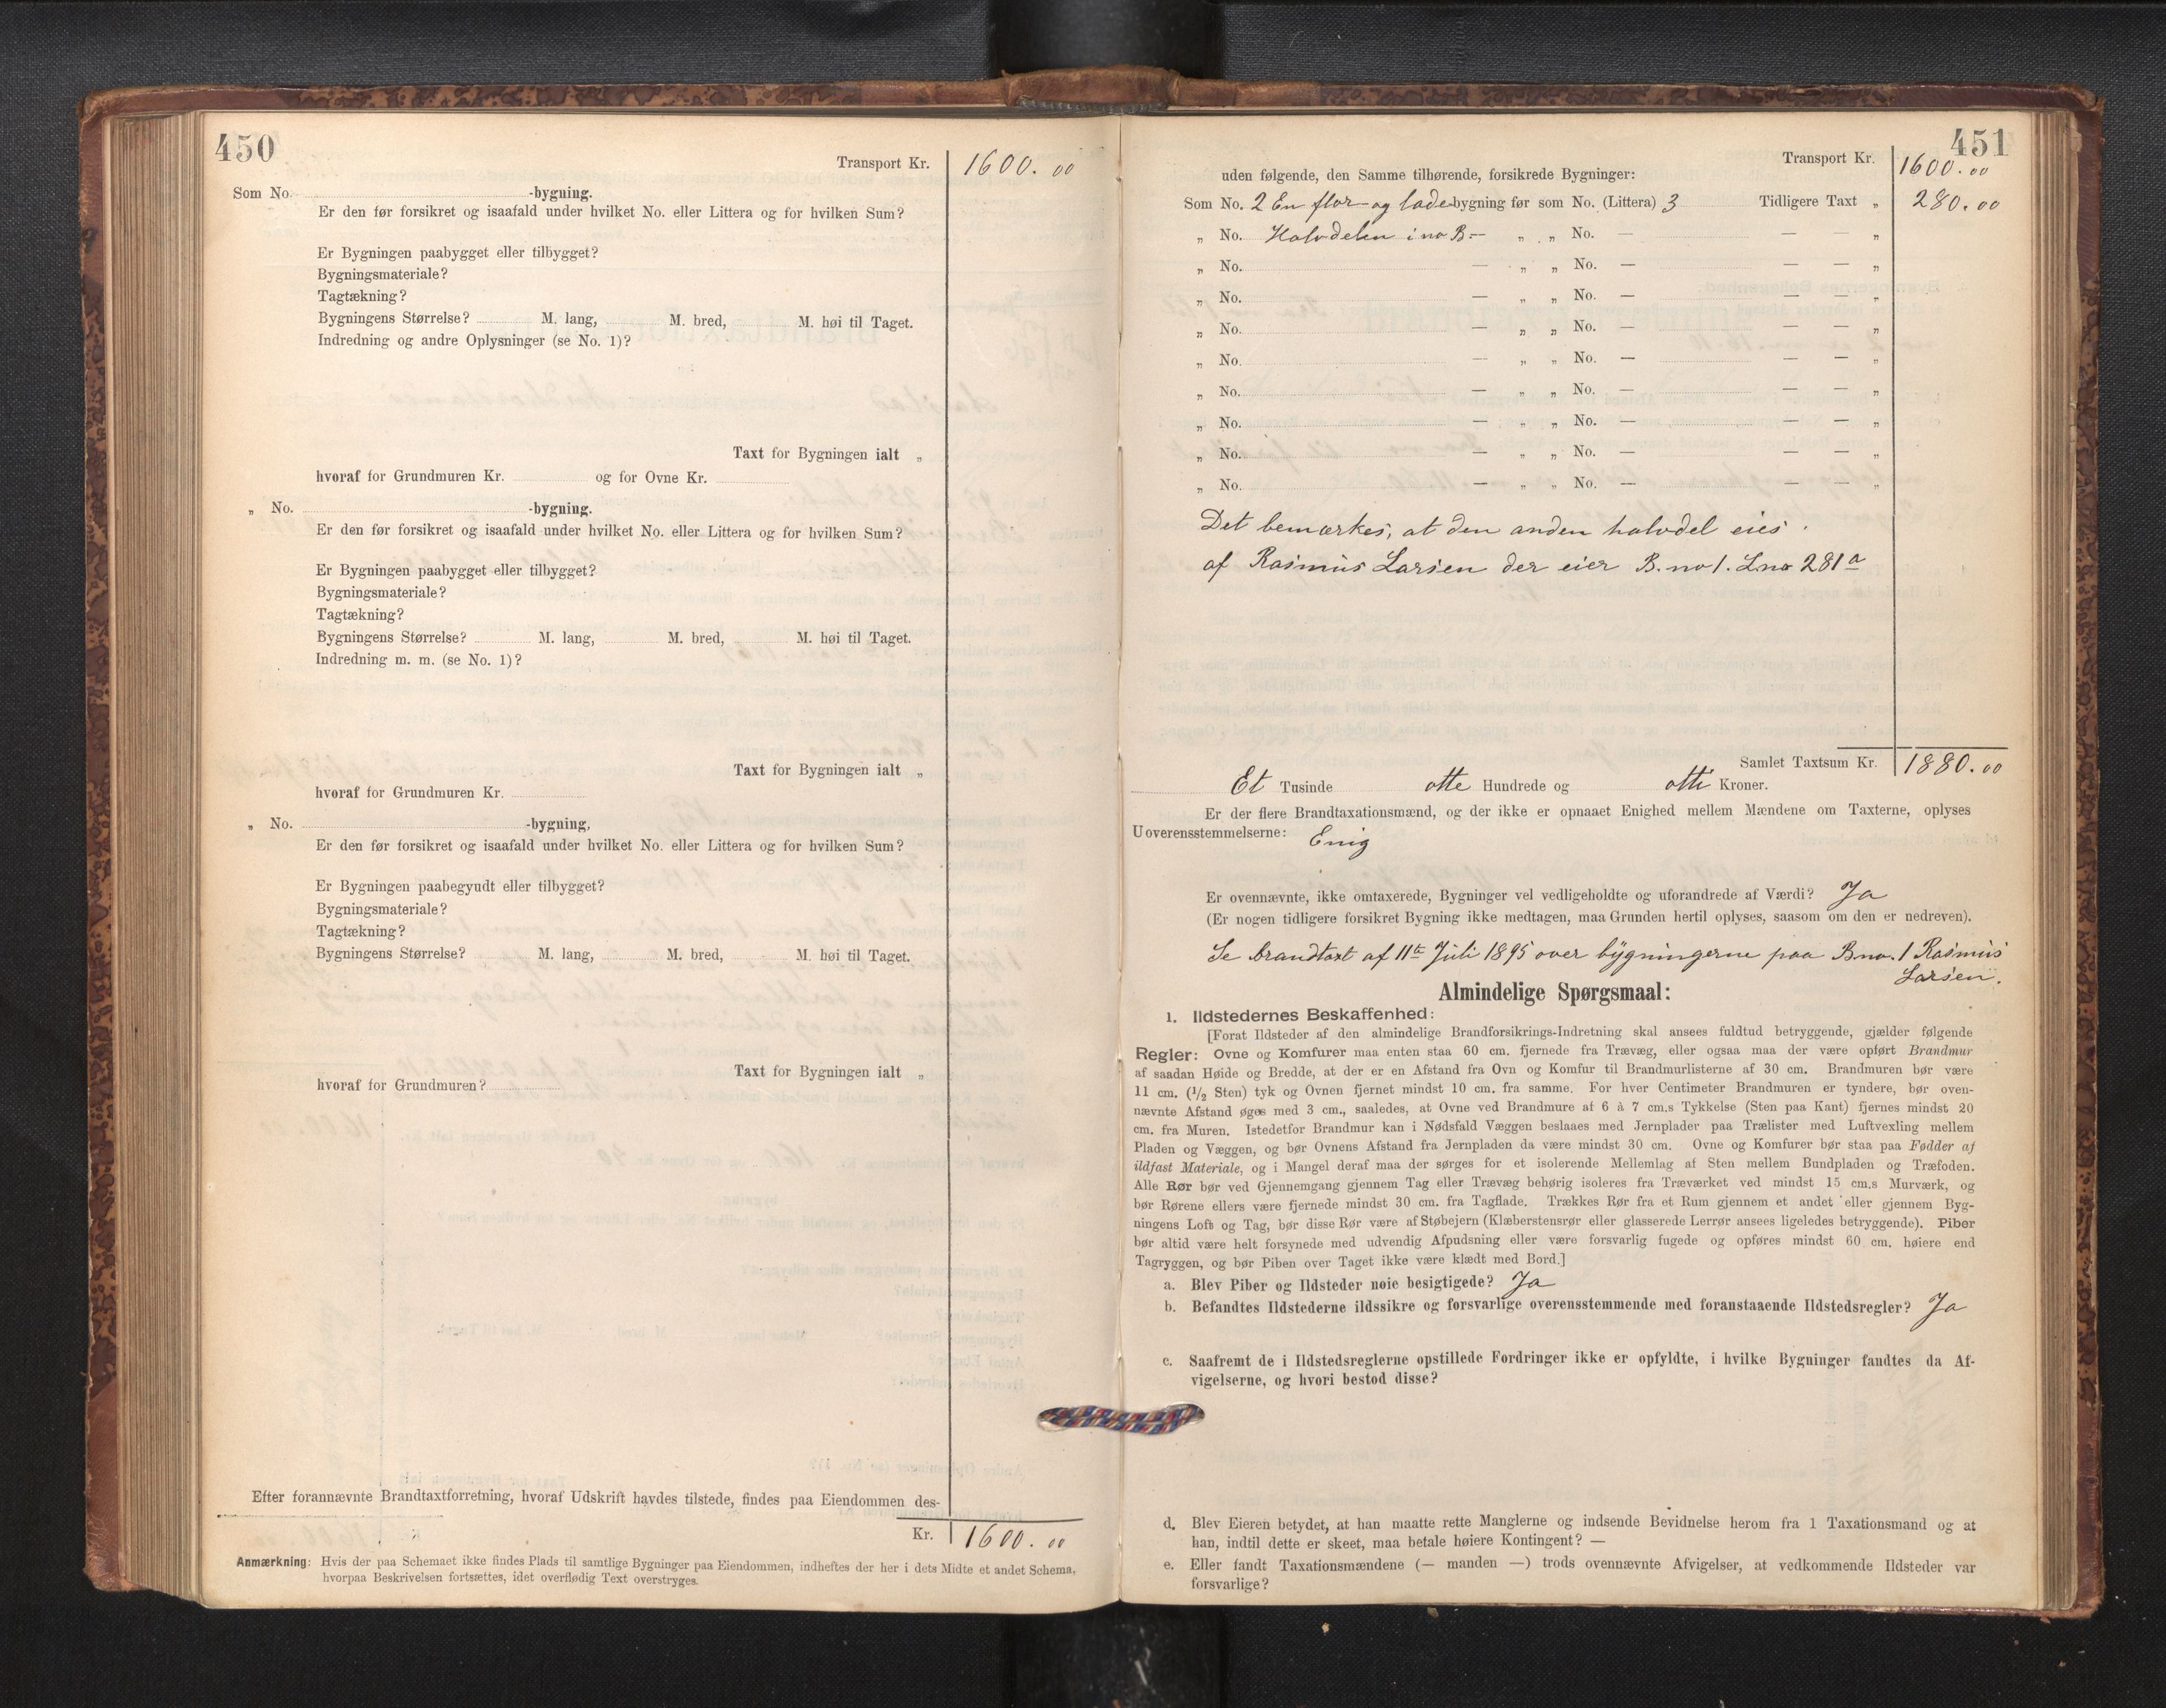 450
Transport Kr. 1600.00
Som No. -bygning.
Er den før forsikret og isaafald under hvilket No. eller Littera og for hvilken Sum?
Er Bygningen paabygget eller tilbygget?
Bygningsmateriale?
Tagtækning?
Bygningens Størrelse? M. lang, M. bred, M. høi til Taget.
Indredning og andre Oplysninger (se No. 1)?
Taxt for Bygningen ialt „
hvoraf for Grundmuren Kr. og for Ovne Kr.
„ No. -bygning.
Er den før forsikret og isaafald under hvilket No. eller Littera og for hvilken Sum?
Er Bygningen paabygget eller tilbygget?
Bygningsmateriale?
Tagtækning?
Bygningens Størrelse? M. lang, M. bred, M. høi til Taget.
Indredning m. m. (se No. 1)?
Taxt for Bygningen ialt „
hvoraf for Grundmuren Kr.
„ No. -bygning,
Er den før forsikret og isaafald under hvilket No. eller Littera og for hvilken Sum?
Er Bygningen paabegyndt eller tilbygget?
Bygningsmateriale?
Tagtækning?
Bygningens Størrelse? M. lang, M. bred, M. høi til Taget.
Taxt for Bygningen ialt „
hvoraf for Grundmuren?
Efter forannævnte Brandtaxtforretning, hvoraf Udskrift havdes tilstede, findes paa Eiendommen des-
Kr. 1600.00
Anmærkning: Hvis der paa Schemaet ikke findes Plads til samtlige Bygninger paa Eiendommen, indheftes der her i dets Midte et andet Schema,
hvorpaa Beskrivelsen fortsættes, idet overflødig Text overstryges.
451
Transport Kr. 1600.00
uden følgende, den Samme tilhørende, forsikrede Bygninger:
Som No. 2 En flor- og lade bygning før som No. (Littera) 3 Tidligere Taxt „ 280.00
„ No. Halvdelen i no B.- „ „ No. — — — „
„ No. — „ „ No. — — — „
„ No. — „ „ No. — — — „
„ No. — „ „ No. — — — „
„ No. — „ „ No. — — — „
„ No. — „ „ No. — — — „
„ No. — „ „ No. — — — „
„ No. — „ „ No. — — — „
„ No. — „ „ No. — — — „
Det bemærkes, at den anden halvdel eies
af Rasmus Larsen der eier B. no 1. L.no 281a
Samlet Taxtsum Kr. 1880.00
Et Tusinde otte Hundrede og otti Kroner.
Er der flere Brandtaxationsmænd, og der ikke er opnaaet Enighed mellem Mændene om Taxterne, oplyses
Uoverensstemmelserne: Enig
Er ovennævnte, ikke omtaxerede, Bygninger vel vedligeholdte og uforandrede af Værdi? Ja
(Er nogen tidligere forsikret Bygning ikke medtagen, maa Grunden hertil oplyses, saasom om den er nedreven).
Se brandtaxt af 11te Juli 1895 over bygningerne paa Bno. 1 Rasmus
Larsen.
Almindelige Spørgsmaal:
1. Ildstedernes Beskaffenhed:
[Forat Ildsteder af den almindelige Brandforsikrings-Indretning skal ansees fuldtud betryggende, gjælder følgende
Regler: Ovne og Komfurer maa enten staa 60 cm. fjernede fra Trævæg, eller ogsaa maa der være opført Brandmur
af saadan Høide og Bredde, at der er en Afstand fra Ovn og Komfur til Brandmurlisterne af 30 cm. Brandmuren bør være
11 cm. (1/2 Sten) tyk og Ovnen fjernet mindst 10 cm. fra samme. For hver Centimeter Brandmuren er tyndere, bør oven-
nævnte Afstand øges med 3 cm., saaledes, at Ovne ved Brandmure af 6 à 7 cm.s Tykkelse (Sten paa Kant) fjernes mindst 20
cm. fra Muren. Istedetfor Brandmur kan i Nødsfald Væggen beslaaes med Jernplader paa Trælister med Luftvexling mellem
Pladen og Væggen, og bør Ovnens Afstand fra Jernpladen da være mindst 30 cm. Ovne og Komfurer bør staa paa Fødder af
ildfast Materiale, og i Mangel deraf maa der sørges for et isolerende Mellemlag af Sten mellem Bundpladen og Træfoden.
Alle Rør bør ved Gjennemgang gjennem Tag eller Trævæg behørig isoleres fra Træværket ved mindst 15 cm.s Murværk, og
bør Rørene ellers være fjernede mindst 30 cm. fra Tagflade. Trækkes Rør fra et Rum gjennem et andet eller gjennem Byg-
ningens Loft og Tag, bør disse Rør være af Støbejern (Klæberstensrør eller glasserede Lerrør ansees ligeledes betryggende). Piber
bør altid være helt forsynede med udvendig Afpudsning eller være forsvarlig fugede og opføres mindst 60 cm. høiere end
Tagryggen, og bør Piben over Taget ikke være klædt med Bord.]
a. Blev Piber og Ildsteder nøie besigtigede? Ja
b. Befandtes Ildstederne ildssikre og forsvarlige overensstemmende med foranstaaende Ildstedsregler? Ja
c. Saafremt de i Ildstedsreglerne opstillede Fordringer ikke er opfyldte, i hvilke Bygninger fandtes da Af-
vigelserne, og hvori bestod disse?
d. Blev Eieren betydet, at han maatte rette Manglerne og indsende Bevidnelse herom fra 1 Taxationsmand og at
han, indtil dette er skeet, maa betale høiere Kontingent? —
e. Eller fandt Taxationsmændene (— manden —) trods ovennævnte Afvigelser, at vedkommende Ildsteder var
forsvarlige?